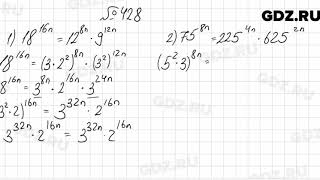 GDZ.RU
№428
1) 18^{16n} = 12^{8n} · 9^{12n}
18^{16n} = (3 · 2^2)^{8n} · (3^2)^{12n}
8^{16n} = 3^{8n} · 2^{16n} · 3^{24n}
3^2 · 2)^{16n} = 3^{32n} · 2^{16n}
3^{32n} · 2^{16n} = 3^{32n} · 2^{16n}
2) 75^{8n} = 225^{4n} · 625^{2n}
(5^2 · 3)^{8n} =
GDZ.RU